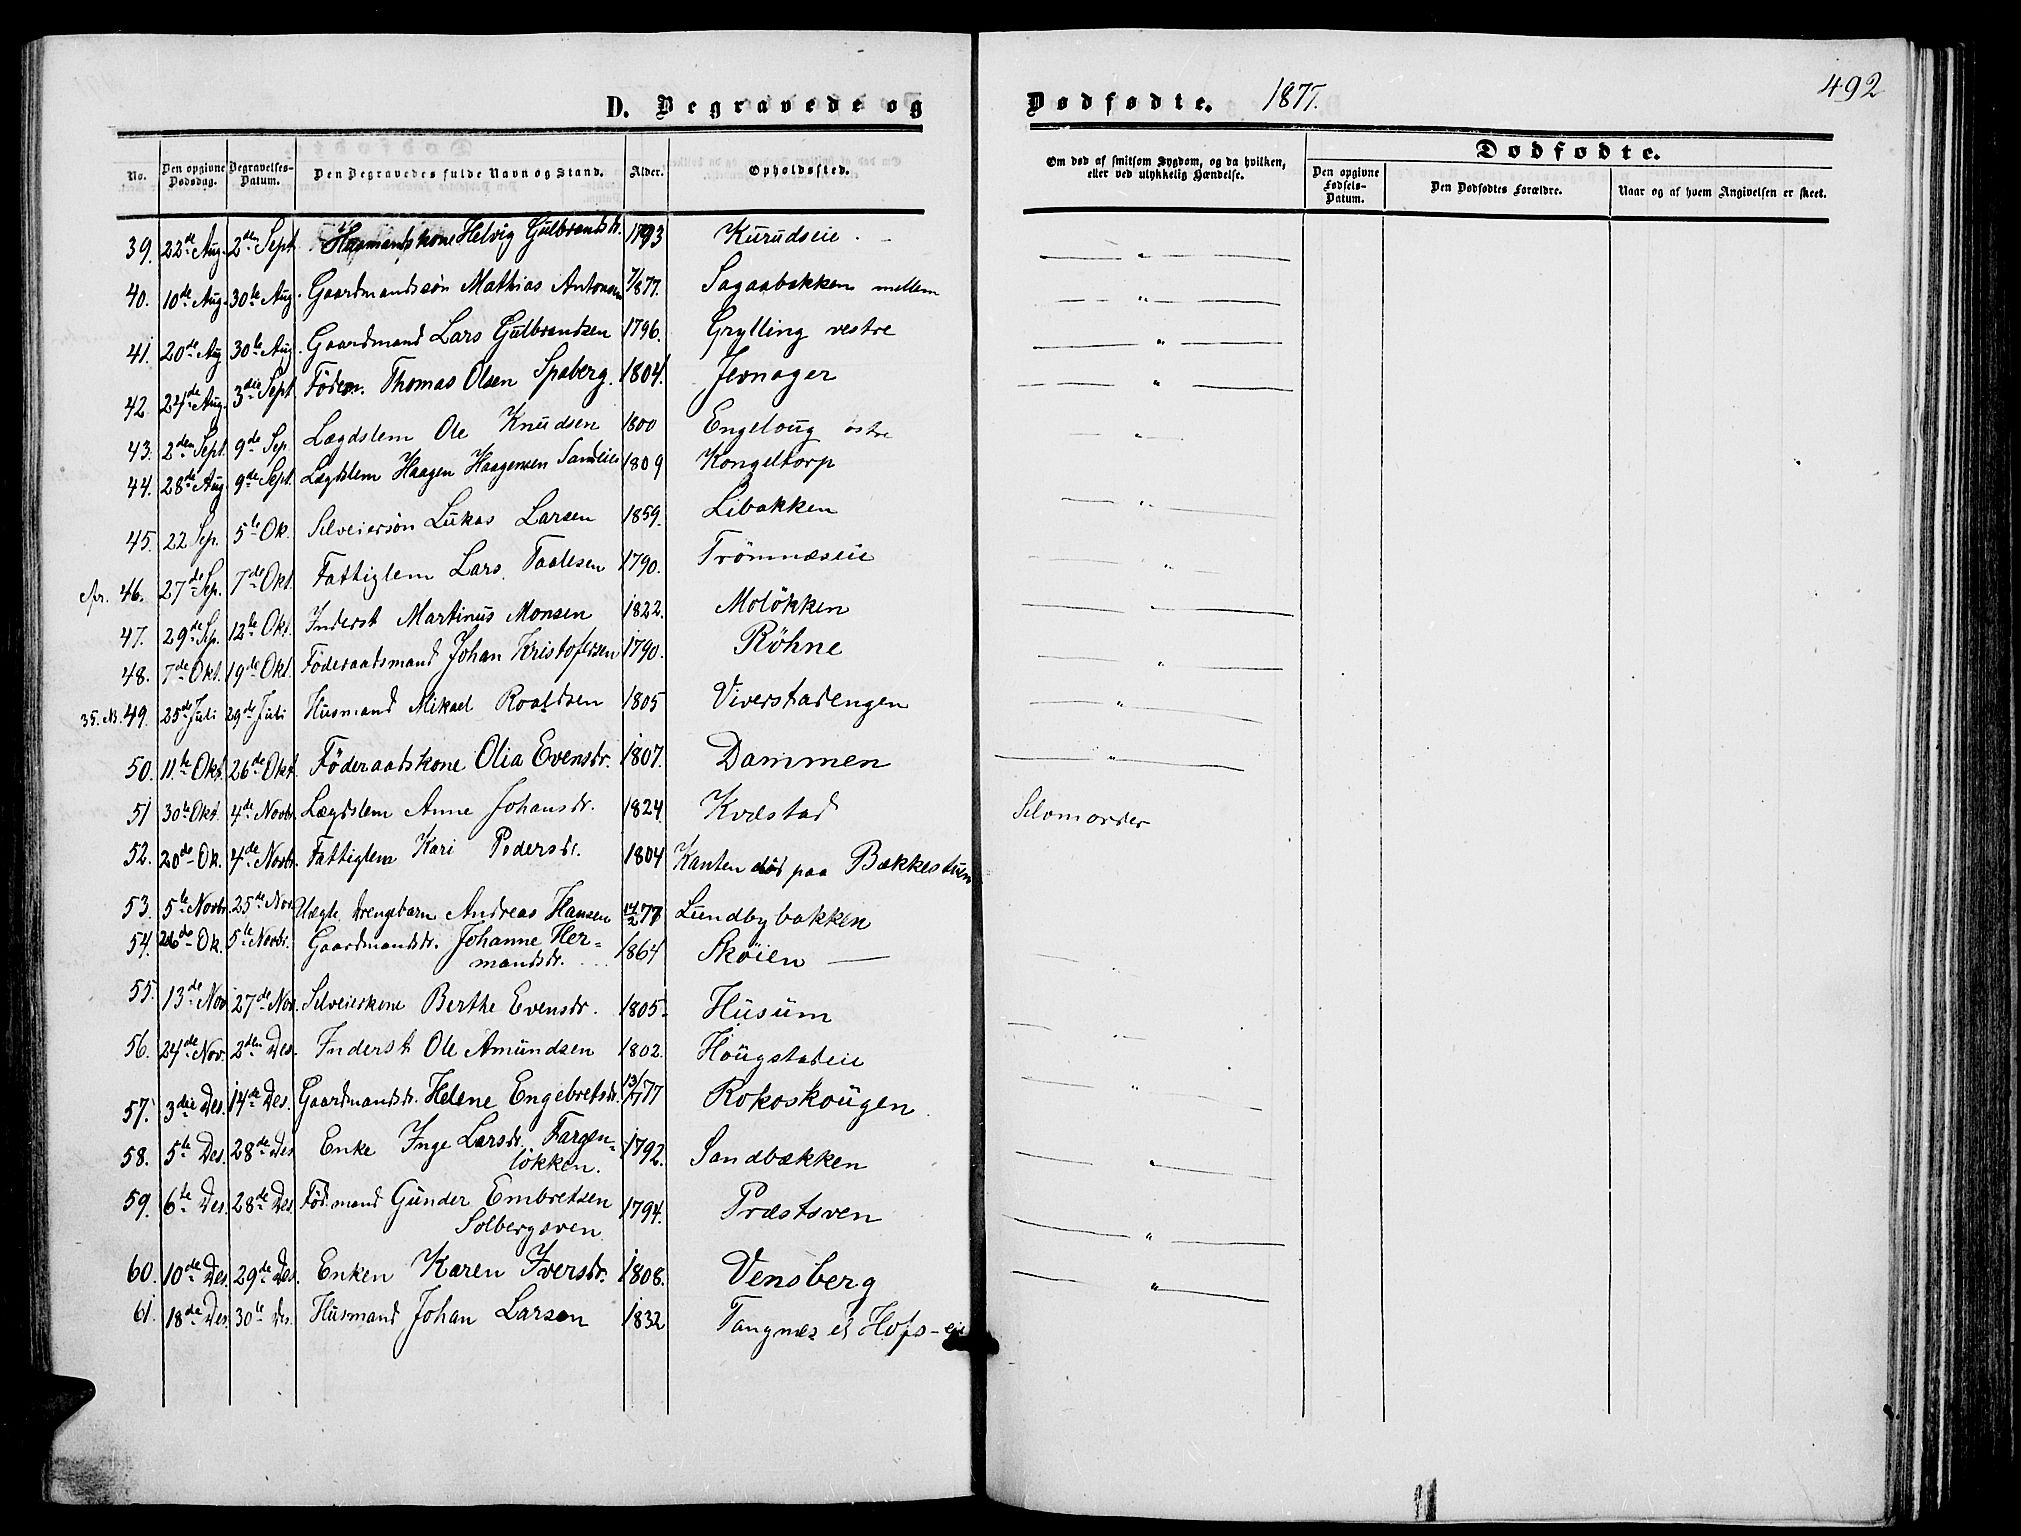 492
D. Begravede og Dødfødte. 1877.
No. Den opgivne Dødsdag. Begravelses-Datum. Den Begravedes fulde Navn og Stand. Alder. Opholdssted. Om død af smitsom Sygdom, og da hvilken, eller ved ulykkelig Hændelse. Dødfødte.
Den opgivne Fødsels-Datum. Den Dødfødtes Forældre. Naar og af hvem Angivelsen er skeet.
39. 22de Aug. 2den Sept. Helvig Gulbrandsdr. 1793 Kurudseie — " —
40. 10de Aug. 30te Aug. Gaardmandssøn Mathias Antonsen 7/877. Sagaabakken mellem — " —
41. 20de Aug 30te Aug. Gaardmand Lars Gulbrandsen 1796. Grylling vestre — " —
42. 24de Aug. 3die Sept. Föderm. Thomas Olsen Spaberg. 1804. Jevnager — " —
43. 2den Sept. 9de Sep. Lægdslem Ole Knudsen 1800 Engeloug østre — " —
44. 28de Aug. 9de Sept. Lægdslem Haagen Haagensen 1809 Kongeltorp
45. 22 Sep. 5te Ok. Selveiersøn Lukas Larsen 1859. Libakken — " —
46. 27de Sep. 7de Okt. Fattiglem Lars Taalesen 1790. Trömnæseie — " —
47. 29de Sp. 12te Okt. Inderst Martinus Monsen 1822. Moløkken — " —
48. 7de Okt. 19de Okt. Föderaadsmand Johan Kristofersen 1790. Röhne — " —
35. 49. 25de Juli 29de Juli Husmand Mikael Roaldsen 1805 Viverstadengen — " —
50. 11te Okt. 26de Okt. Föderaadskone Olia Evensdr. 1807. Dammen — " —
51 30te Okt. 4de Novbr. Lægdslem Anne Johansdr. 1824. Kvæstad Selvmorder
52. 20de Ok. 4de Novbr. Fattiglem Kari Pedersdr. 1804 Kanten död paa Bækkestuen
53. 5te Novbr. 25de Nov. Uægte Drengebarn Andreas Hansen 14/2 77 Lundbybakken
54. 26de Ok. 5te Novbr. Gaardmandsdr. Johanne Her-
mandsdr. 1864 Sköien — " —
55. 13de Nov. 27de Nov. Selveierkone Berthe Evensdr. 1805. Husum — " —
56. 24de Nov. 2den Des. Inderst Ole Amundsen 1802. Höugstadeie — " —
57. 3die Des. 14de Des. Gaardmandsdr. Helene Engebretsdr. 13/7 77 Rokoskougen — " —
58. 5te Des. 28de Des Enke Inge Larsdr. Fargen-
lökken. 1792. Sandbækken — " —
59. 6te Des. 28de Des. Födmand Gunder Embretsen
Solbergsven 1794. Præstsven — " —
60. 10de Des. 29de Des. Enken Karen Iversdr. 1808. Vensberg — " —
61. 18de Des. 30te Des. Husmand Johan Larsen 1832 Tangnæs ei Hofs-eie